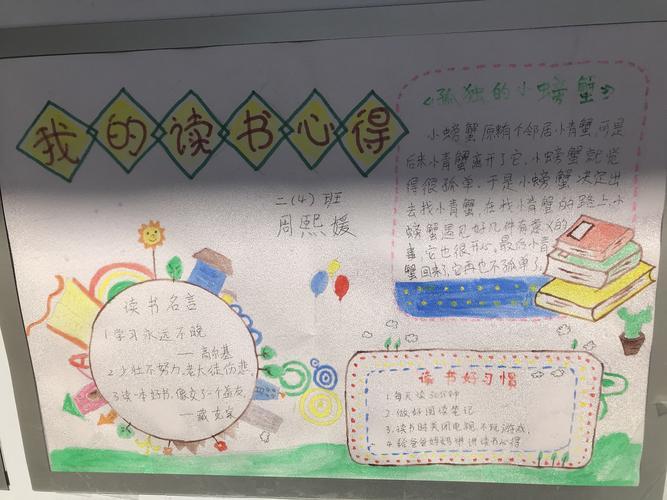 我的读书心得
二(4)班
周熙媛
《孤独的小螃蟹》
小螃蟹原有个邻居小青蟹,可是
后来小青蟹离开了它,小螃蟹就觉
得很孤单。于是小螃蟹决定出
去找小青蟹,在找小青蟹的路上,小
螃蟹遇见好几件有意义的
事,它也很开心,最后小青
蟹回来了,它再也不孤单了。
读书名言
1.学习永远不晚
——高尔基
2.少壮不努力,老大徒伤悲。
3.读一本好书,像交了一个益友
——臧克家
读书好习惯
1.每天读30分钟
2.做好阅读笔记
3.读书时关闭电视,不玩游戏,
4.给爸爸妈妈讲讲读书心得